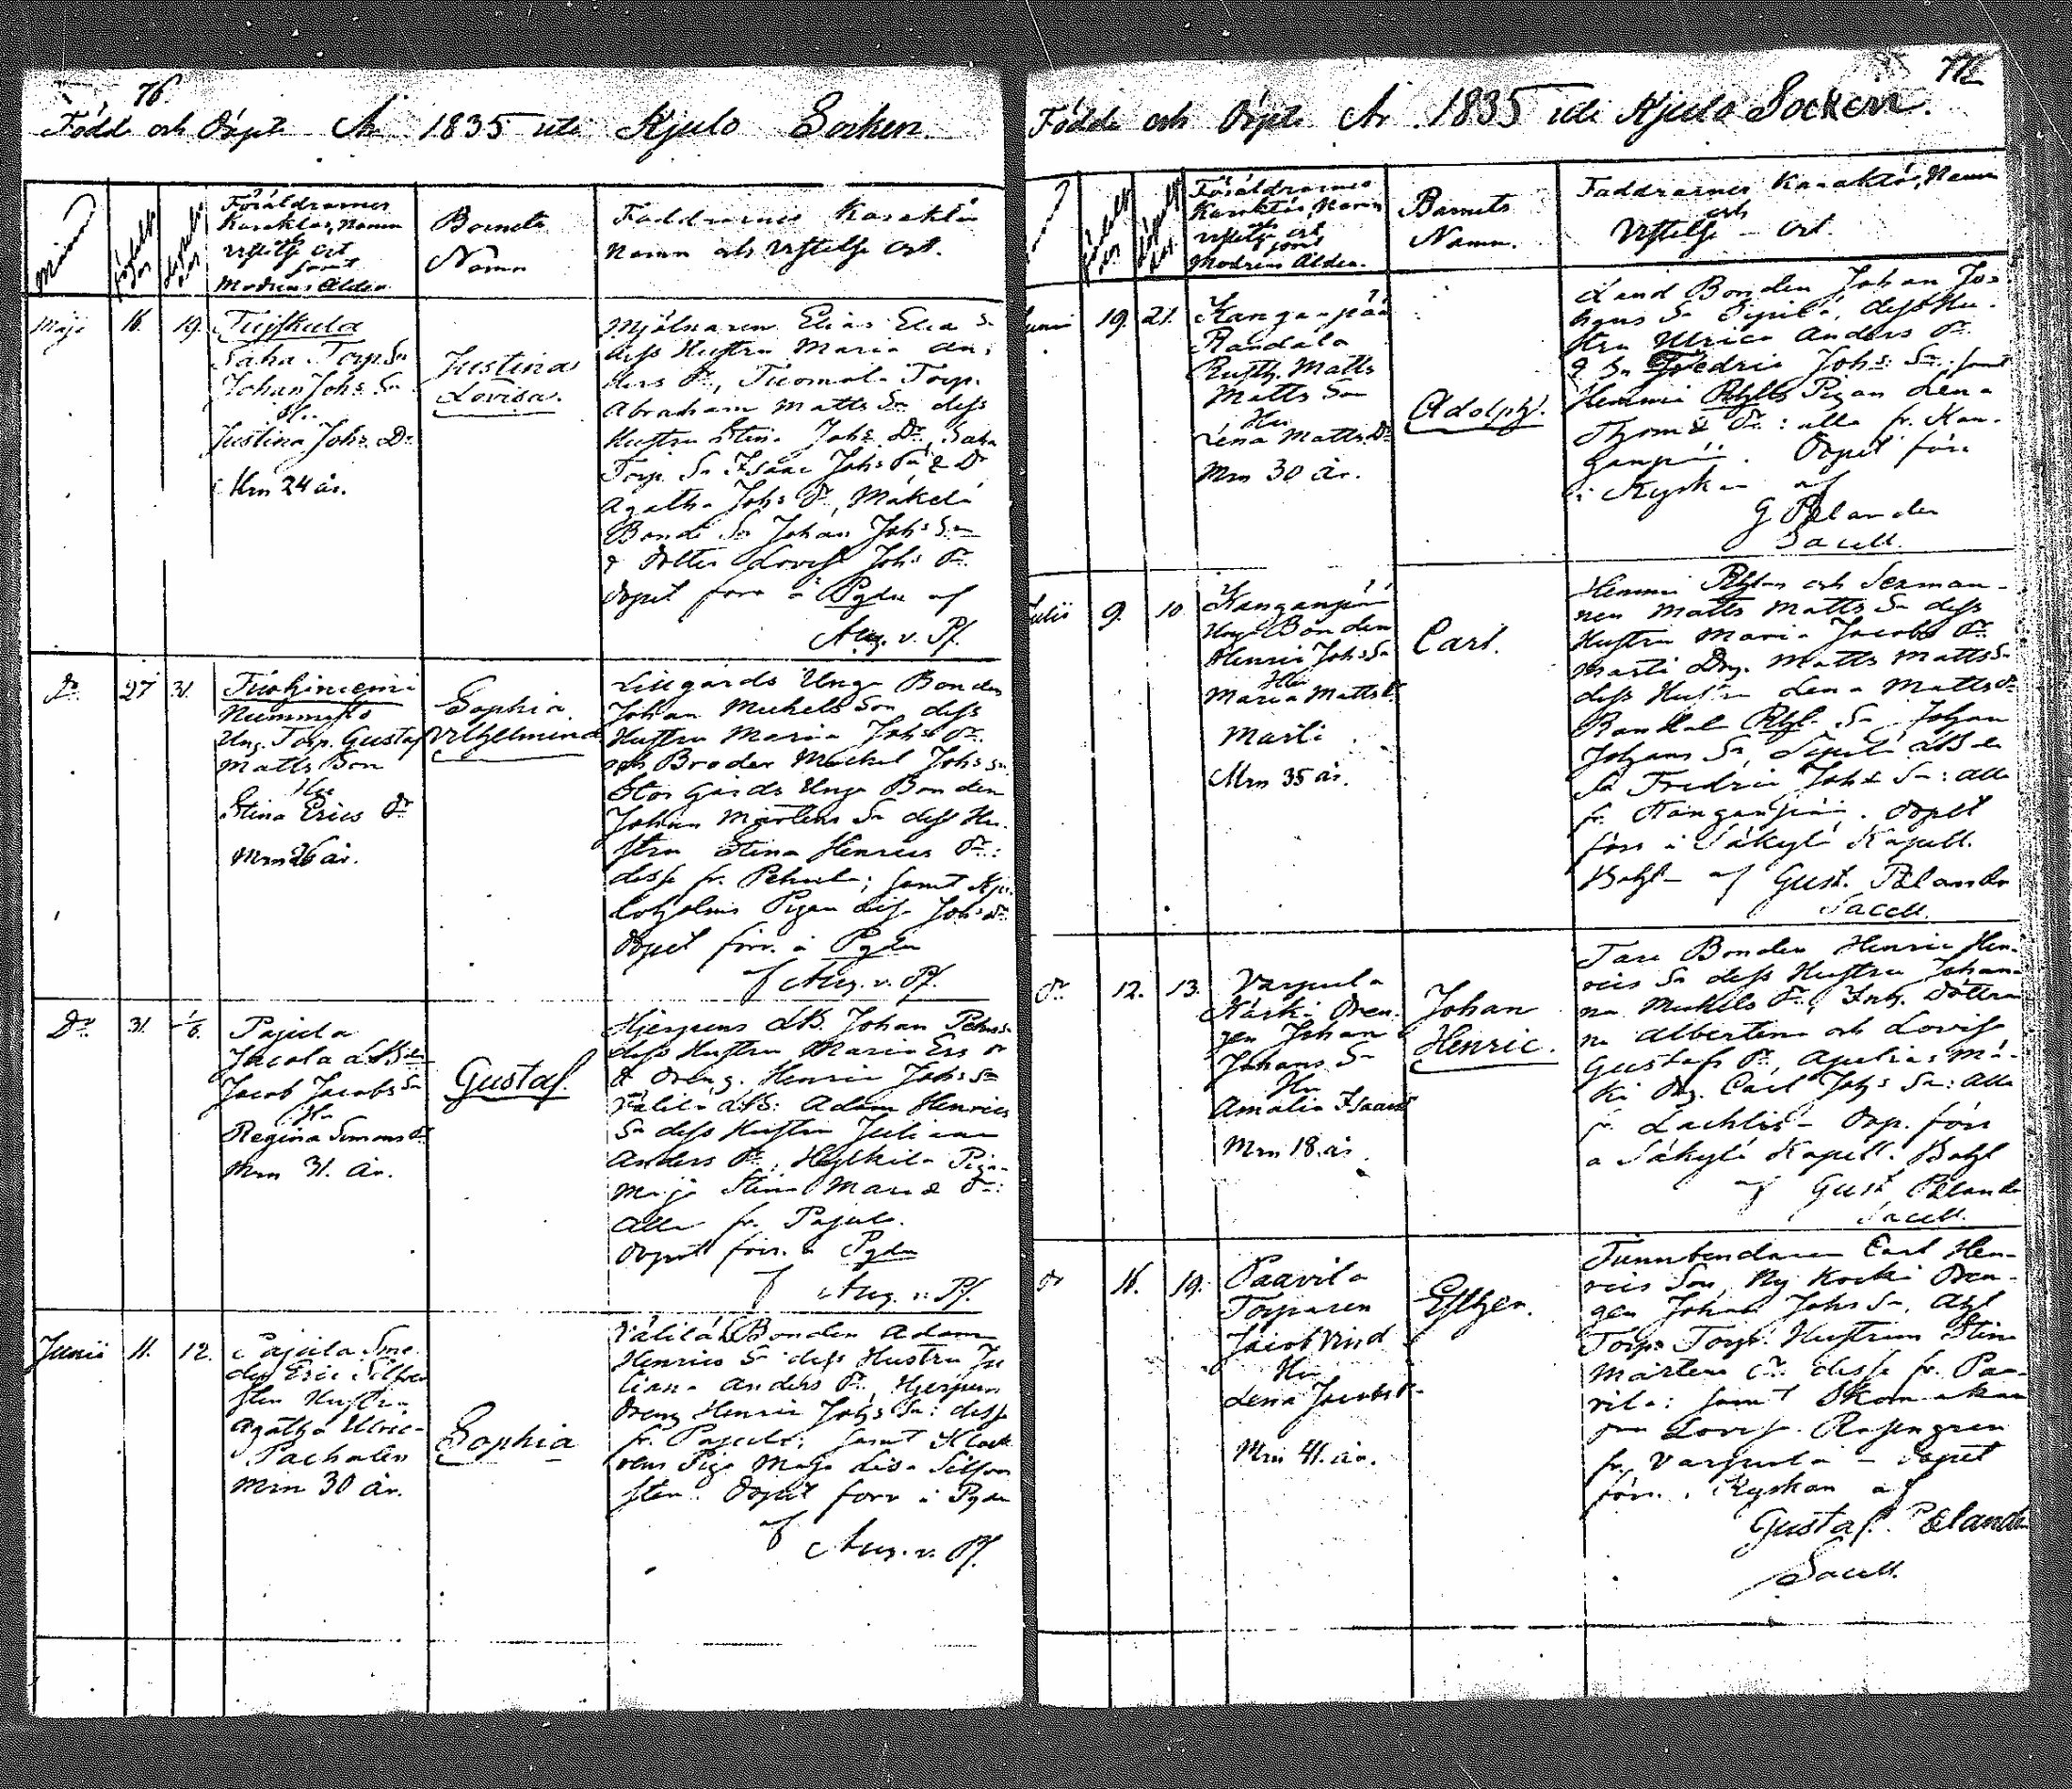 76
Född och Döpte År 1835 uti Kjulo Socken.
Föräldrarnes
Karakter, Namn
och
Vistelse Ort
samt
Modrens Ålder
Barnets
Namn
Faddrarnes Karaktär
Namn och Vistelse Ort.
Maji 16. 19.
Tuiskula
Saha Torp. Sn
Johan Johs Sn
H.
Justina Johs Dr
Mrn 24 år.
Justina
Lovisa.
Mjölnaren Elias Elia Sn
dess Hustru Maria An-
ders Dr, Tuomola Torp.
Abraham Matts Sn dess
Hustru Stina Johs Dr, Saha
Torp. Sn Isaac Johs Sn & Dr
Agatha Johs Dr, Mäkelä
Bonde Sn Johan Johs Sn
& Dotter Lovisa Johs Dr.
Döpet förr. a Pgdn af
Aug. v. Pf.
Do 27 31.
Tuohiniemi
Nummisto
Ung. Torp. Gustaf
Matts Son
Hu
Stina Erics Dr
Mrn 26 år.
Sophia
Vilhelmina
Lillgårds Unge Bonden
Johan Michels Son dess
Hustru Maria Johs Dr.
och Broder Michel Johs Sn
Storgårds Unge Bonden
Johan Mårtens Sn dess Hu-
stru Stina Henrics Dr:
desse fr. Pehula; samt Kju-
loholms Pigan Lisa Johs Dr
Döpet förr. a Pgdn
af Aug. v. Pf.
Do 31. 1/6.
Pajula
Jacola LBden
Jacob Jacobs Sn
Hu
Regina Simons Dr
Mrn 31. år.
Gustaf.
Hjerpens LB. Johan
dess Hustru Maria Ers Dr
& Dreng. Henric Johs Sn
Välilä LB: Adam Henrics
Sn dess Hustru Juliana
Anders Dr, Pigan
Maja Stina Dr:
alla fr. Pajula.
Döpet förr. a Pgdn
af Aug. v. Pf.
Junii 11. 12.
Pajula Sme-
den Eric Silfver-
sten Hustru
Agatha Ulric-
Pacholen
Mrn 30 år.
Sophia
Välilä Bonden Adam
Henrics Sn dess Hustru Ju-
liana Anders Dr, Hjerpens
Dreng Henric Johs Sn: desse
fr. Pajula; samt Klock-
rens Piga Maja Lisa Silfver-
sten. Döpet förr a Pgdn
af Aug. v. Pf.
Födde och Döpte År 1835 uti Kjulo Socken.
Föräldrarnes
Karaktär, Namn
och
Vistelse Ort
Modrens Ålder.
Barnets
Namn.
Faddrarnes Karaktär, Namn
och
Vistelse Ort
Junii 19. 21.
Kanganpää
Randala
Rusth. Matts
Matts Son
Hu
Lena Matts Dr
Mrn 30 år.
Adolph.
Land Bonden Johan Jo-
hans Sn Sipilä, dess Hu-
stru Ulrica Anders Dr.
& Sn Fredric Johs Sn: samt
Hemmi Rhlls Pigan Lena
Thoms Dr: alla fr. Kan-
ganpää. Döpet förr
i Kyrkan af
G Pólander
Sacell.
Julii 9. 10.
Kanganpää
Unge Bonden
Henric Johs Sn
Hu
Maria Matts Dr.
Marti
Mrn 35 år.
Carl.
Hemmi och Sexman-
nen Matts Matts Sn dess
Hustru Maria Jacobs Dr.
Marti Dng. Matts Matts Sn
dess Hustru Lena Matts Dr
Randala Sn Johan
Johans Sn, Sipilä LBds
Sn Fredric Johs Sn: alla
fr. Kanganpää. Döpet
förr a Säkylä Kapell.
Bohl af Gust. Pólander
Sacell.
Do 12. 13.
Varpula
Kärki Dren-
gen Johan
Johans Sn
Hu
Amalia Isaacs
Mrn 18. år.
Johan
Henric.
Tare Bonden Henric Hen-
rics Sn dess Hustru Johan-
na Michels Dr, Inh. Döttrar-
na Albertina och Lovisa
Gustafs Dr, Mä-
ki Dng. Carl Johs Sn: alla
fr. Lachtis – Döp. förr
a Säkylä Kapell. Bohl
af Gust. Pólander
Sacell.
Do 16. 19.
Paavila
Torparen
Jacob Vind
Hu
Lena Jacobs Dr
Mrn 41. år.
Esther.
Tunnbindaren Carl Hen-
rics Son, Ny Kocki Dren-
gen Johan Johs Sn,
Torp: Torp. Hustrun Stina
Mårtens Dr. desse fr. Paa-
vila: samt Skomakar
frun Lovisa Rosengren
fr. Varpula – Döpet
förr. i Kyrkan af
Gustaf Pólander
Sacell.